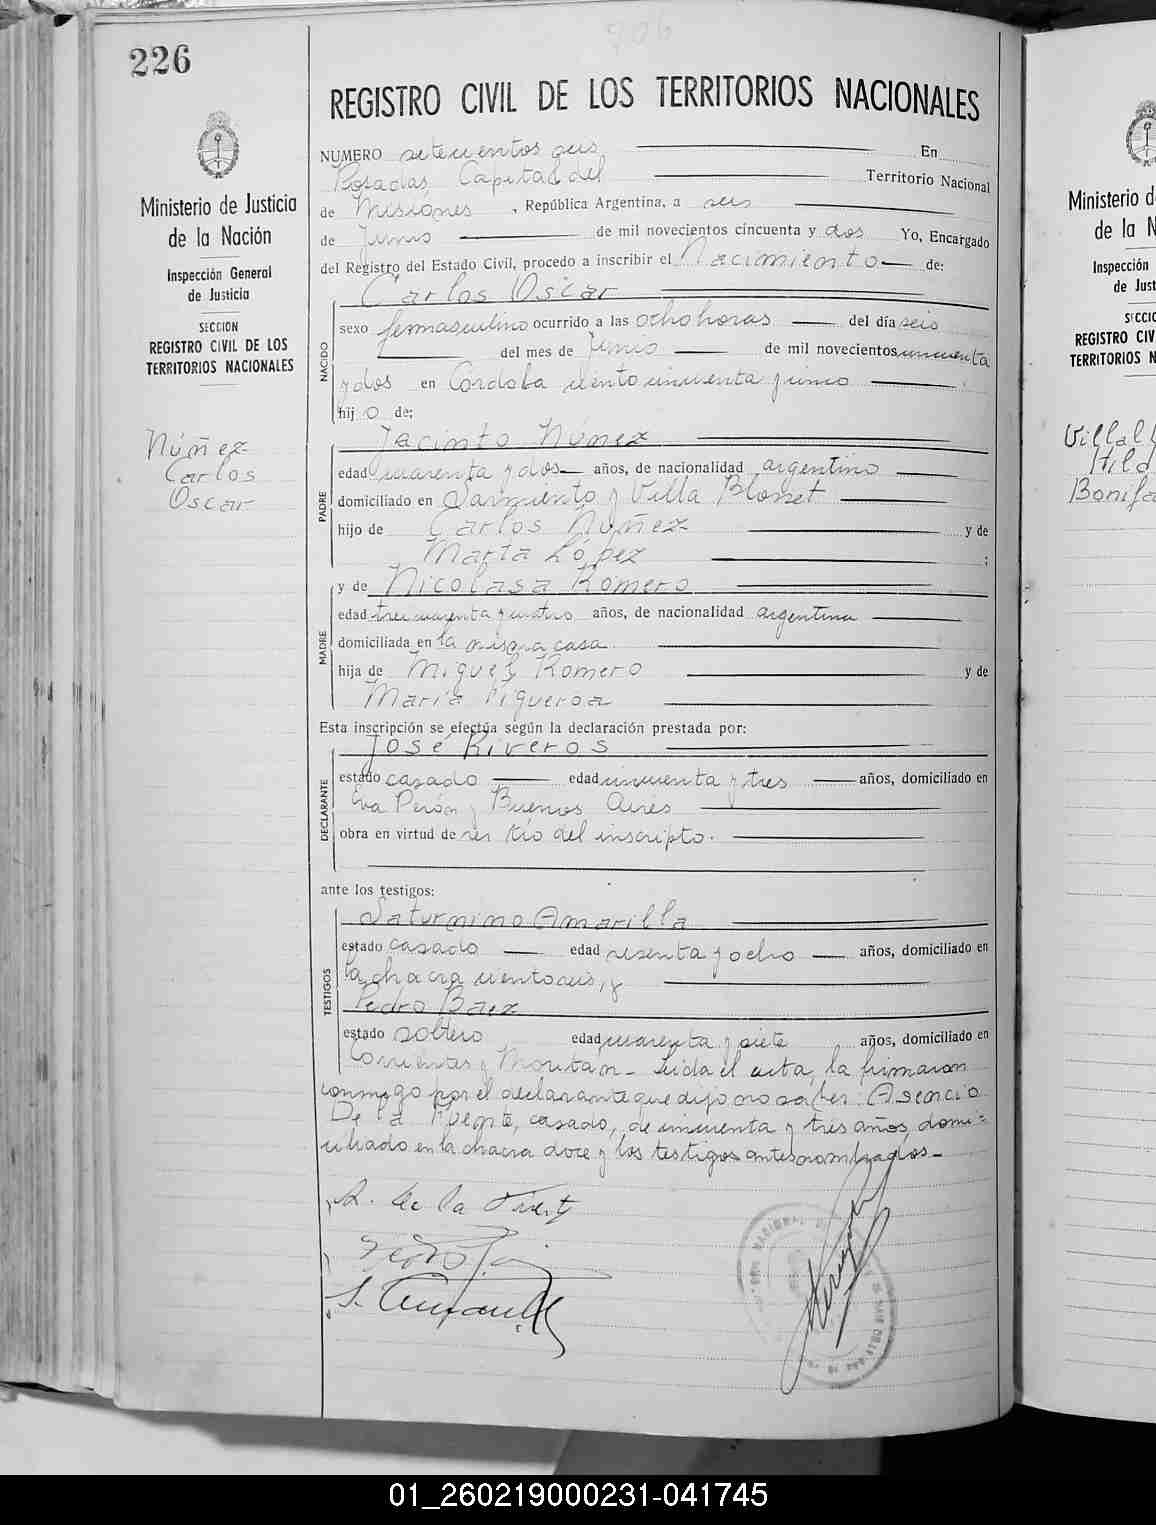 906
226
REGISTRO CIVIL DE LOS TERRITORIOS NACIONALES
Ministerio de Justicia
de la Nación
Inspección General
de Justicia
SECCION
REGISTRO CIVIL DE LOS
TERRITORIOS NACIONALES
Núñez
Carlos
Oscar
NUMERO setecientos seis En
Posadas, Capital del Territorio Nacional
de Misiones, República Argentina, a seis
de Junio de mil novecientos cincuenta y dos Yo, Encargado
del Registro del Estado Civil, procedo a inscribir el Nacimiento de:
Carlos Oscar
NACIDO
sexo masculino ocurrido a las ocho horas del día seis
del mes de Junio de mil novecientos cincuenta
y dos en Córdoba ciento cincuenta y cinco
hijo de:
Jacinto Núnez
PADRE
edad cuarenta y dos años, de nacionalidad argentino
domiciliado en Sarmiento y Villa Blosset
hijo de Carlos Núñez y de
Marta López ;
y de Nicolasa Romero
MADRE
edad y cuatro años, de nacionalidad argentina
domiciliada en la misma casa.
hija de Miguel Romero y de
María Figueroa
Esta inscripción se efectúa según la declaración prestada por:
José Riveros
DECLARANTE
estado casado edad cincuenta y tres años, domiciliado en
Eva Perón y Buenos Aires
obra en virtud de ser tío del inscripto.
ante los testigos:
Saturnino Amarilla
TESTIGOS
estado casado edad sesenta y ocho años, domiciliado en
la chacra ciento seis, y
Pedro Baez
estado soltero edad cuarenta y siete años, domiciliado en
Corrientes y Moritán - Leida el acta, la firmaron
conmigo por el declarante que dijo no saber: Asencio
De la Puente, casado, de cincuenta y tres años, domi-
ciliado en la chacra doce y los testigos antes nombrados -
A. de la Puente
S. Amarilla
Ministerio d
de la N
Inspección
de Just
SECCIO
REGISTRO CIV
TERRITORIOS N
Villal
Hild
Bonifa
01_260219000231-041745